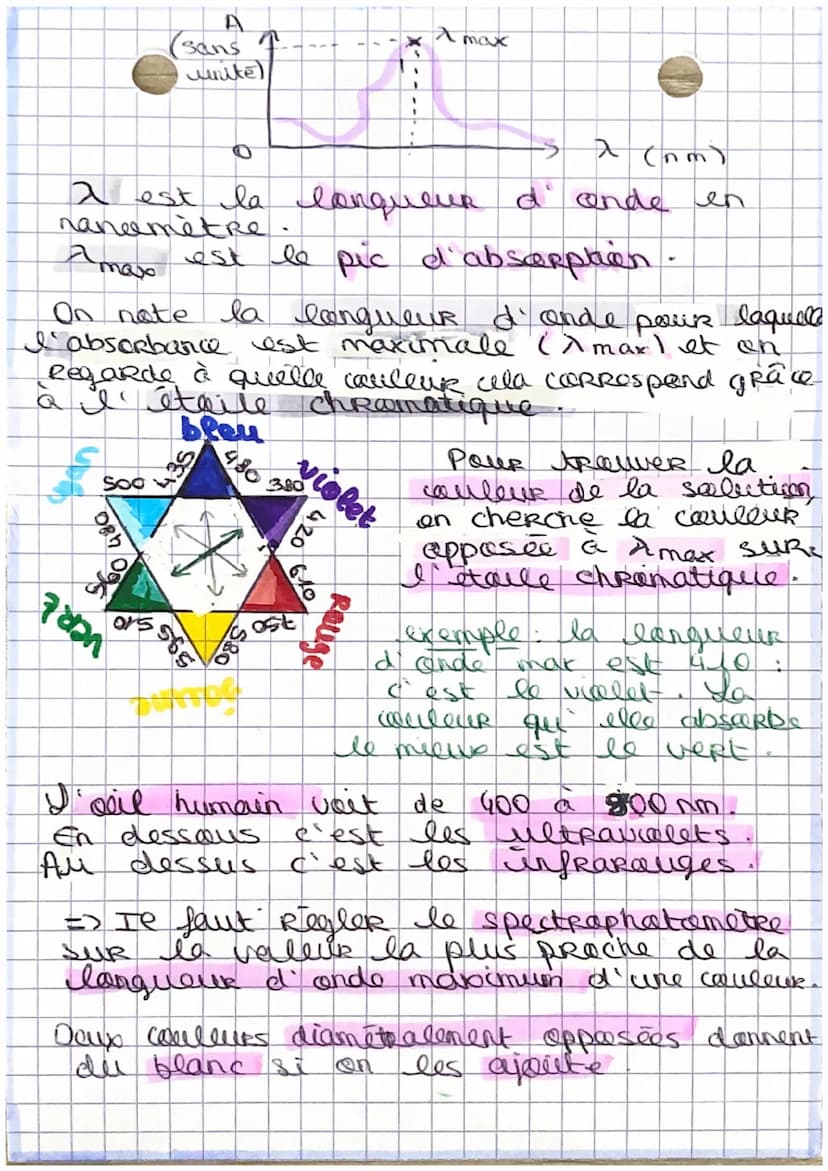 A
(sans
unité)
λ max
0
λ (nm)
λ est la longueur d'onde en
nanomètre.
λmax est le pic d'absorption.
On note la longueur d'onde pour laquelle
l'absorbance est maximale (λmax) et on
regarde à quelle couleur cela correspond grâce
à l'étoile chromatique.
bleu
cyan
violet
500 435 480 380
480 420
495 610
510 595 580 750
vert
rouge
jaune
Pour trouver la
couleur de la solution,
on cherche la couleur
opposée à λmax sur
l'étoile chromatique.
exemple : la longueur
d'onde max est 410 :
c'est le violet. La
couleur qu'elle absorbe
le mieux est le vert.
L'œil humain voit de 400 à 800 nm.
En dessous c'est les ultraviolets.
Au dessus c'est les infrarouges.
=> Il faut régler le spectrophotomètre
sur la valeur la plus proche de la
longueur d'onde maximum d'une couleur.
Deux couleurs diamétralement opposées donnent
du blanc si on les ajoute.